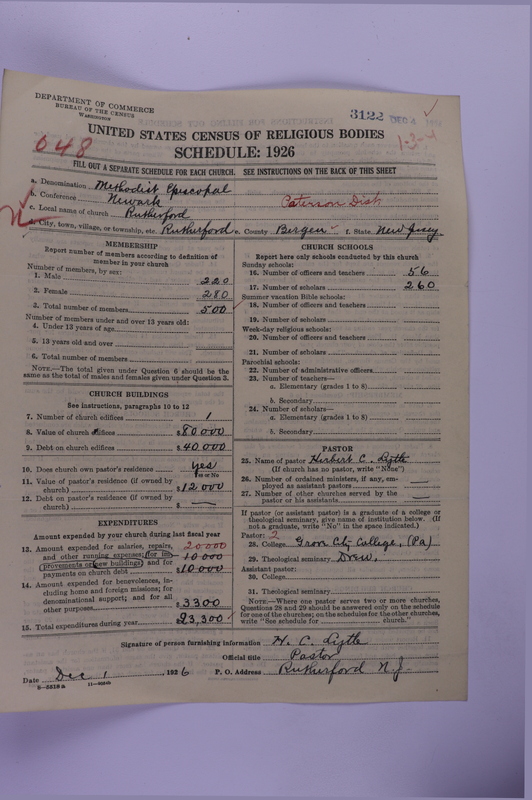 DEPARTMENT OF COMMERCE
BUREAU OF THE CENSUS
WASHINGTON
3122 DEC 4
1-3-4
648
UNITED STATES CENSUS OF RELIGIOUS BODIES
SCHEDULE: 1926
FILL OUT A SEPARATE SCHEDULE FOR EACH CHURCH. SEE INSTRUCTIONS ON THE BACK OF THIS SHEET
a. Denomination Methodist Episcopal
b. Conference Newark Paterson Dist
c. Local name of church Rutherford
d. City, town, village, or township, etc. Rutherford e. County Bergen f. State New Jersey
MEMBERSHIP
Report number of members according to definition of
member in your church
Number of members, by sex:
1. Male 220
2. Female 280
3. Total number of members 500
Number of members under and over 13 years old:
4. Under 13 years of age
5. 13 years old and over
6. Total number of members
NOTE.—The total given under Question 6 should be
same as the total of males and females given under Question 3.
CHURCH BUILDINGS
See instructions, paragraphs 10 to 12
7. Number of church edifices 1
8. Value of church edifices $80000
9. Debt on church edifices $40000
10. Does church own pastor's residence yes
Yes or No
11. Value of pastor's residence (if owned by
church) $12000
12. Debt on pastor's residence (if owned by
church) $ —
EXPENDITURES
Amount expended by your church during last fiscal year
13. Amount expended for salaries, repairs, 20000
and other running expenses; for im- 10000
provements or new buildings; and for
payments on church debt $10000
14. Amount expended for benevolences, in-
cluding home and foreign missions; for
denominational support; and for all
other purposes $3300
15. Total expenditures during year $23,300
CHURCH SCHOOLS
Report here only schools conducted by this church
Sunday schools:
16. Number of officers and teachers 56
17. Number of scholars 260
Summer vacation Bible schools:
18. Number of officers and teachers
19. Number of scholars
Week-day religious schools:
20. Number of officers and teachers
21. Number of scholars
Parochial schools:
22. Number of administrative officers
23. Number of teachers—
a. Elementary (grades 1 to 8)
b. Secondary
24. Number of scholars—
a. Elementary (grades 1 to 8)
b. Secondary
PASTOR
25. Name of pastor Herbert C. Lytle
(If church has no pastor, write "None")
26. Number of ordained ministers, if any, em-
ployed as assistant pastors —
27. Number of other churches served by the
pastor or his assistants —
If pastor (or assistant pastor) is a graduate of a college or
theological seminary, give name of institution below. (If
not a graduate, write "No" in the space indicated.)
Pastor: 2
28. College Grove City College, (Pa)
29. Theological seminary Drew,
Assistant pastor:
30. College
31. Theological seminary
NOTE.—Where one pastor serves two or more churches,
Questions 28 and 29 should be answered only on the schedule
for one of the churches; on the schedules for the other churches,
write "See schedule for church."
Signature of person furnishing information H. C. Lytle
Official title Pastor
Date Dec 1, 1926 P. O. Address Rutherford N.J.
8-5518a